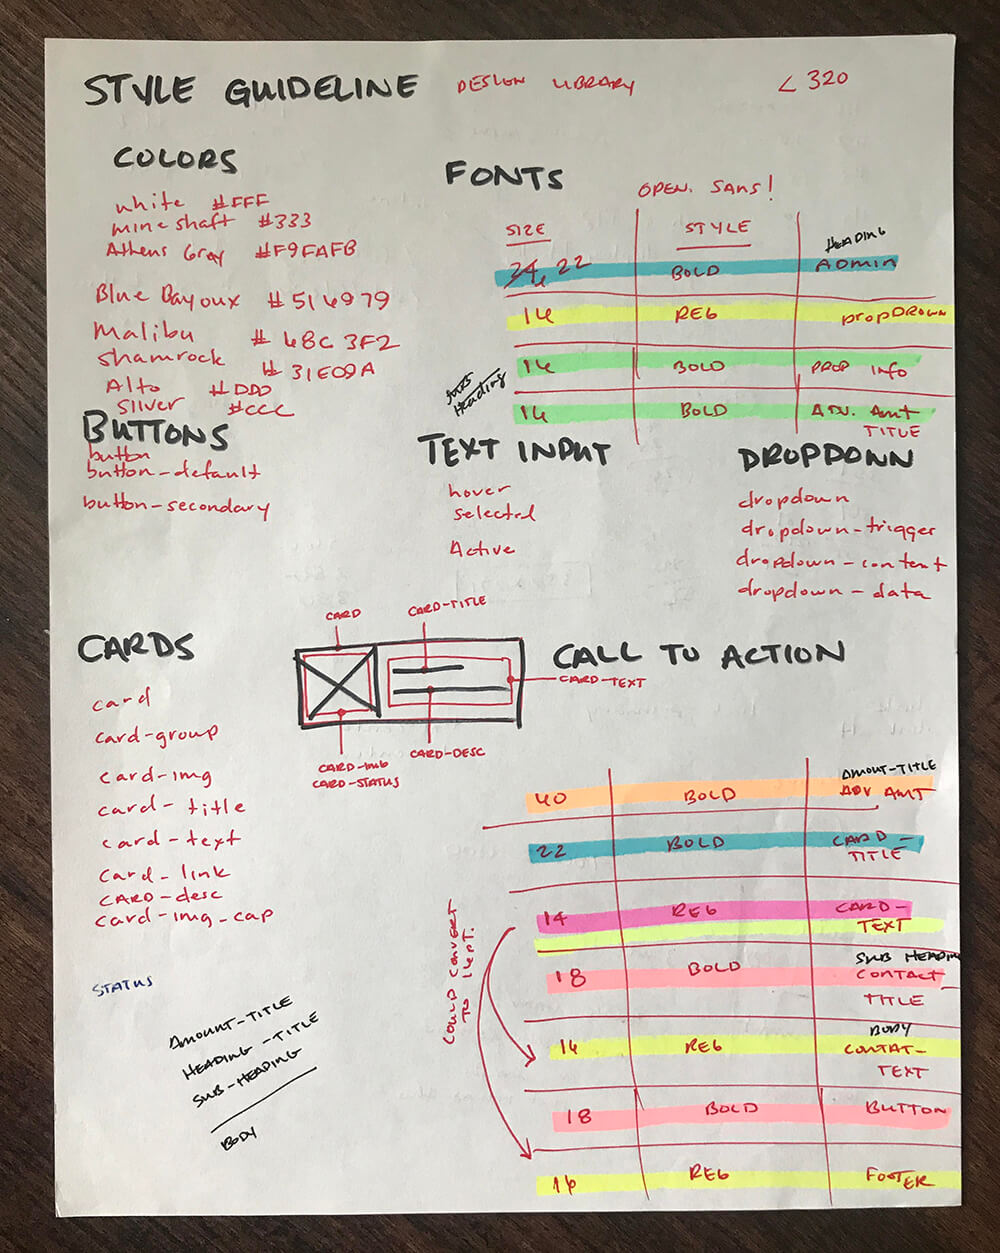 STYLE GUIDELINE DESIGN LIBRARY < 320
COLORS
white #FFF
mineshaft #333
Athens Gray #F9FAFB
Blue Bayoux #516979
Malibu #68C3F2
shamrock #31E09A
Alto #DDD
Silver #CCC
FONTS
OPEN. SANS!
SIZE STYLE
HEADING
24, 22 BOLD ADMIN
16 REG DROPDROWN
16 BOLD PROP INFO
Heading
16 BOLD ADV. AMT
TITLE
BUTTONS
button
button-default
button-secondary
TEXT INPUT
hover
selected
Active
DROPDOWN
dropdown
dropdown-trigger
dropdown-content
dropdown-data
CARDS
card
card-group
card-img
card-title
card-text
card-link
CARD-desc
card-img-cap
CARD
CARD-TITLE
CARD-TEXT
CARD-IMG
CARD-STATUS
CARD-DESC
CALL TO ACTION
AMOUT-TITLE
40 BOLD ADV AMT
22 BOLD CARD-
TITLE
14 REG CARD-
TEXT
SUB HEADING
18 BOLD CONTACT
TITLE
BODY
16 REG CONTAT-
TEXT
18 BOLD BUTTON
16 REG FOOTER
COULD CONVERT
TO 16PT.
STATUS
AMOUNT-TITLE
HEADING-TITLE
SUB-HEADING
BODY